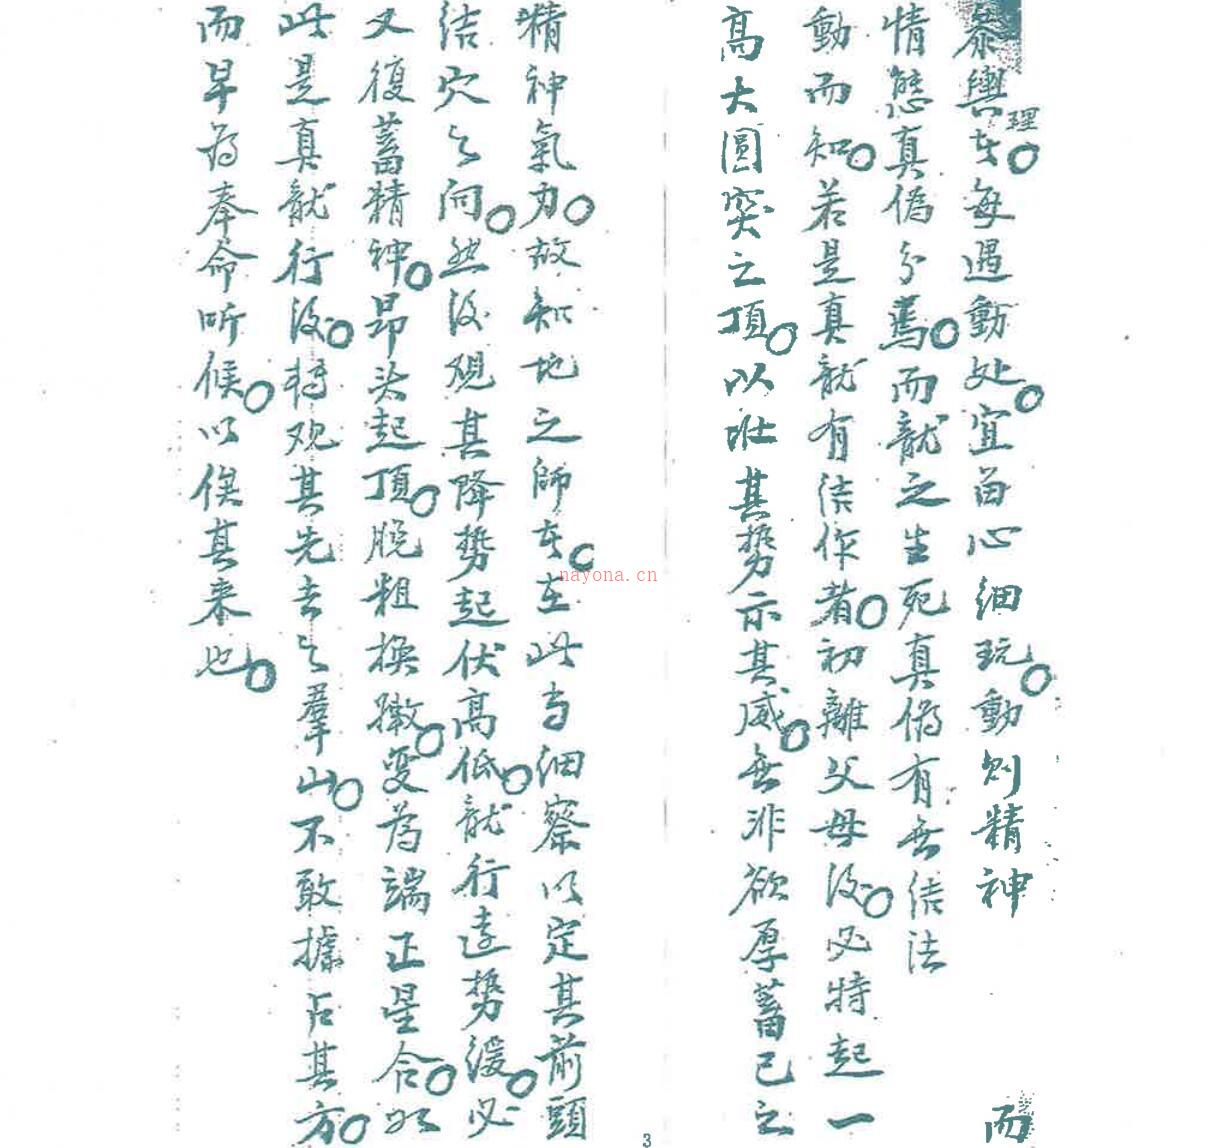 叅輿理者每遇動处宜留心細玩動則精神
而
情態真偽分焉而龍之生死真偽有無结法
動而知若是真龍有结作者初離父母後必特起一
高大圓突之頂以壯其勢示其威無非欲厚蓄己之
精神氣力故知地之師者在此当细察以定其前頭
结穴之向然後观其降勢起伏高低龍行遠勢緩必
又復蓄精神昂头起頂脫粗換嫩变为端正星合於
此是真龍行後转观其先去之羣山不敢據占其方
而早为奉命听候以俟其来也
nayona.cn
3